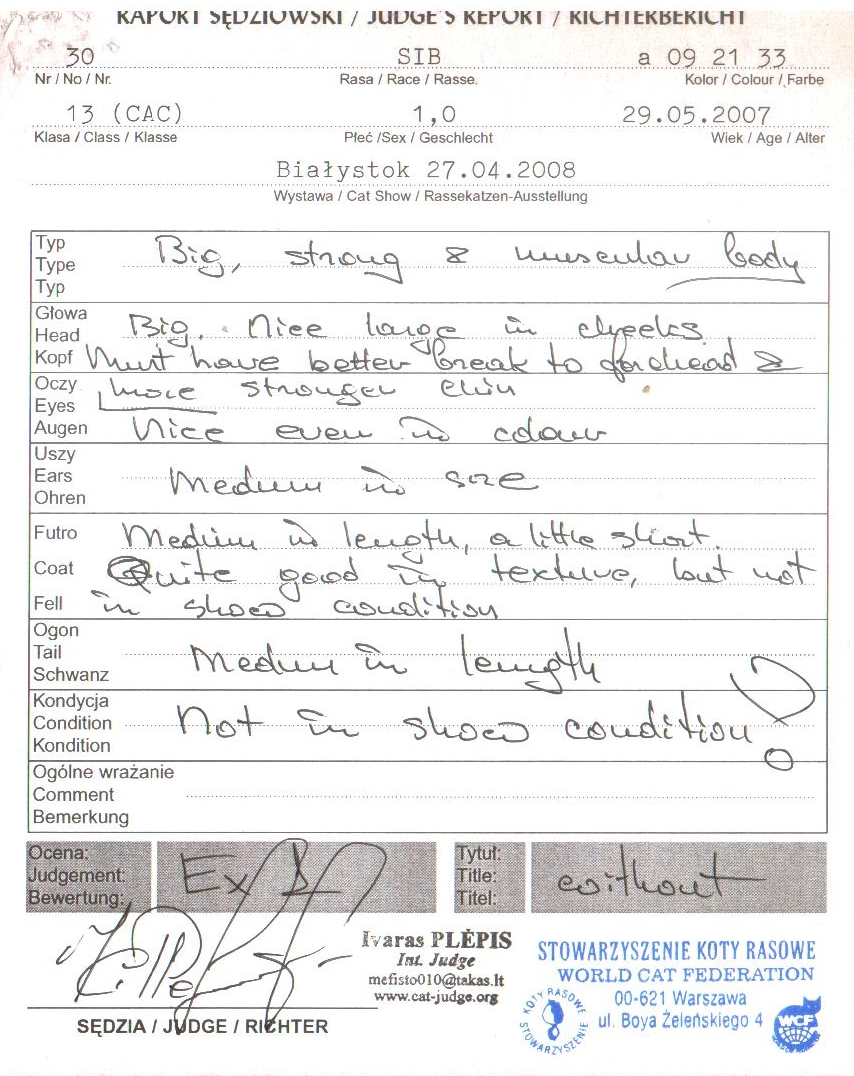 RAPORT SĘDZIOWSKI / JUDGE'S REPORT / RICHTERBERICHT
30 SIB a 09 21 33
Nr / No / Nr. Rasa / Race / Rasse. Kolor / Colour / Farbe
13 (CAC) 1,0 29.05.2007
Klasa / Class / Klasse Płeć /Sex / Geschlecht Wiek / Age / Alter
Białystok 27.04.2008
Wystawa / Cat Show / Rassekatzen-Ausstellung
Typ
Type
Typ
Big, strong & muscular body
Głowa
Head
Kopf
Big. Nice large in cheeks
Must have better break to forehead &
more stronger chin
Oczy
Eyes
Augen
Nice even in colour
Uszy
Ears
Ohren
Medium in size
Futro
Coat
Fell
Medium in length, a little short.
Quite good in texture, but not
in show condition
Ogon
Tail
Schwanz
Medium in length
Kondycja
Condition
Kondition
Not in show condition!
Ogólne wrażanie
Comment
Bemerkung
Ocena:
Judgement:
Bewertung:
Ex 1
Tytuł:
Title:
Titel:
without
Ivaras PLĖPIS
Int. Judge
mefisto010@takas.lt
www.cat-judge.org
SĘDZIA / JUDGE / RICHTER
STOWARZYSZENIE KOTY RASOWE
WORLD CAT FEDERATION
00-621 Warszawa
ul. Boya Żeleńskiego 4
KOTY RASOWE
STOWARZYSZENIE
WCF